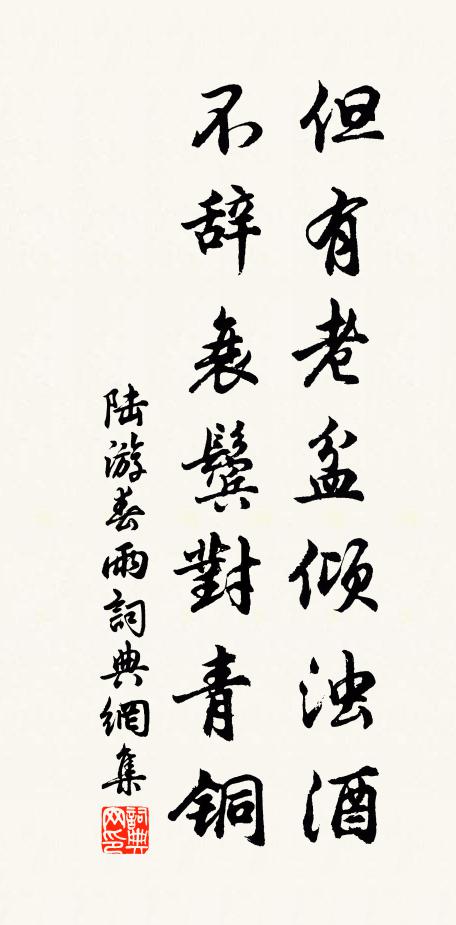 但有老盆倾浊酒
不辞衰鬓對青铜
陆游春雨詞典網集
詞典
网印